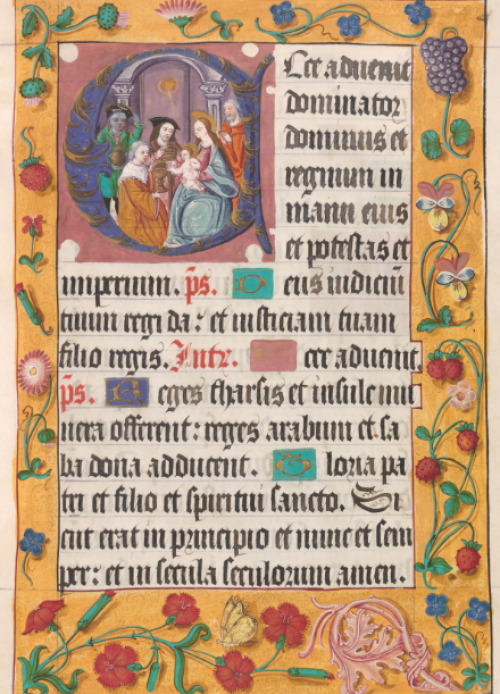 Ecce aduenit
dominator
dominus et
regnum in
manu eius
et potestas et
imperium. p̄s. Deus iudiciū
tuum regi da: et iusticiam tuam
filio regis. Intr. Ecce aduenit.
p̄s. Reges tharsis et insule mu
nera offerent: reges arabum et sa
ba dona adducent. Gloria pa
tri et filio et spiritui sancto. Si
cut erat in principio et nunc et sem
per: et in secula seculorum amen.